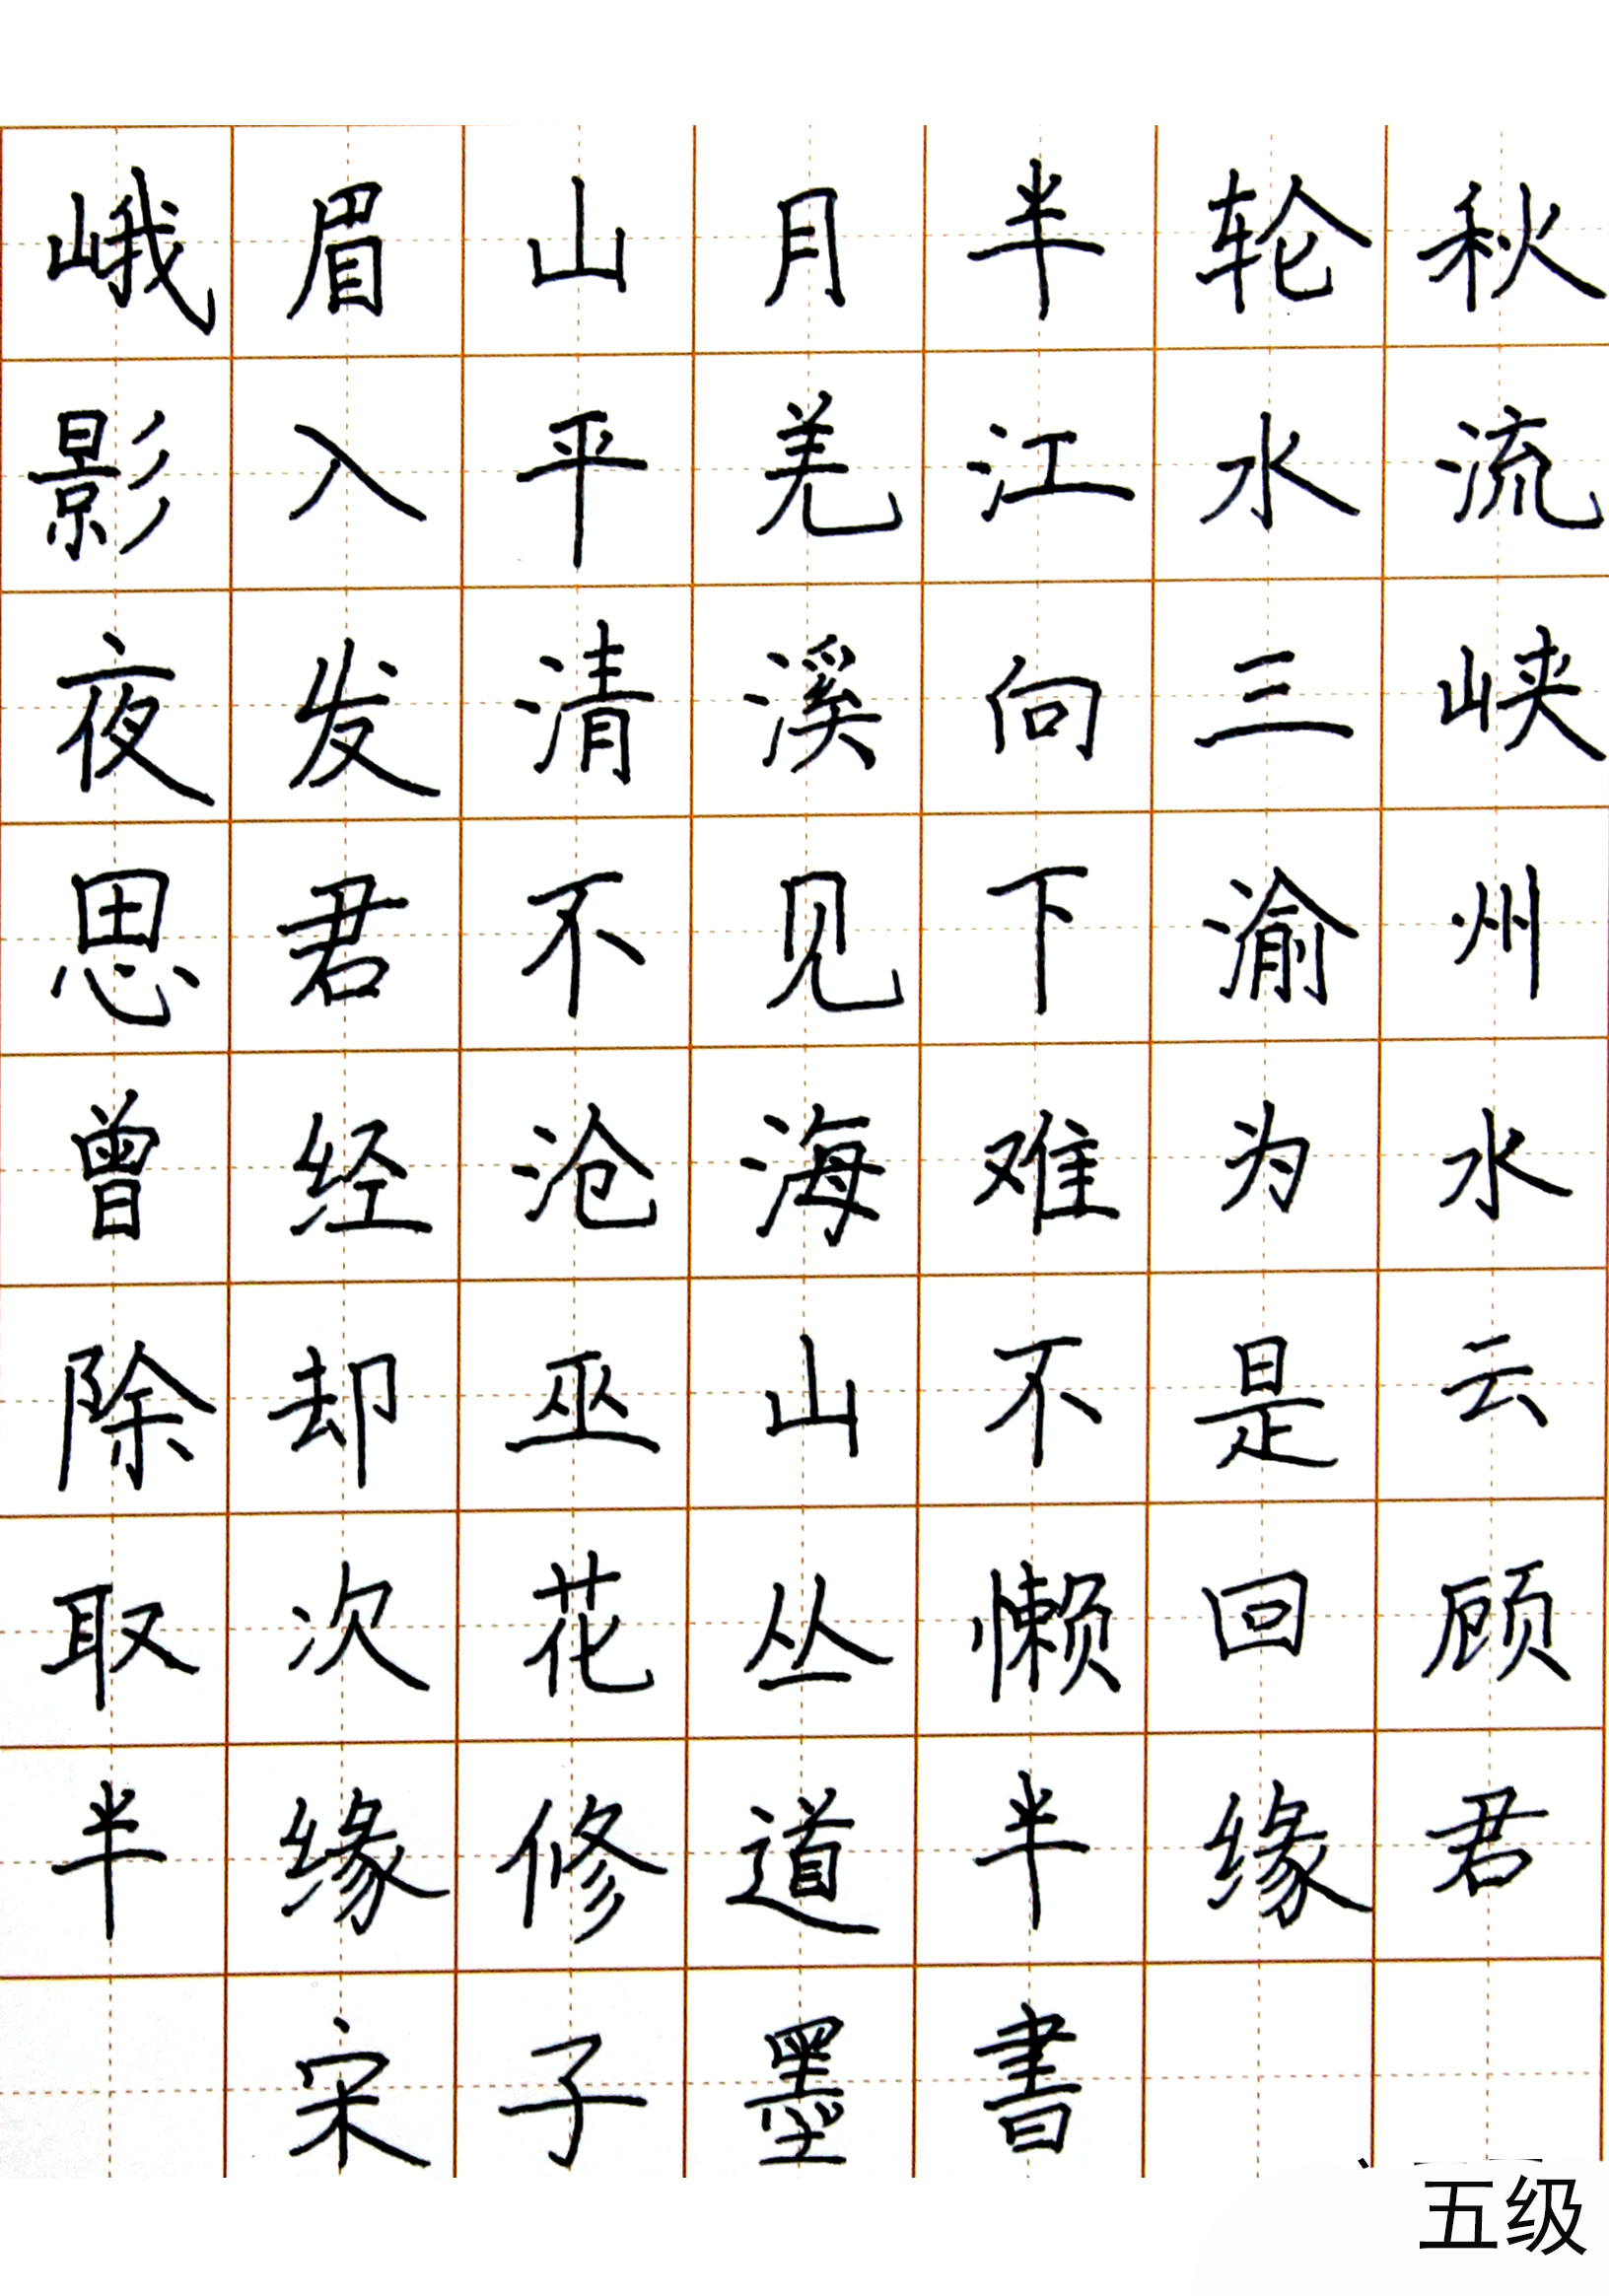 峨眉山月半轮秋
影入平羌江水流
夜发清溪向三峡
思君不见下渝州
曾经沧海难为水
除却巫山不是云
取次花丛懒回顾
半缘修道半缘君
宋子墨書
五级